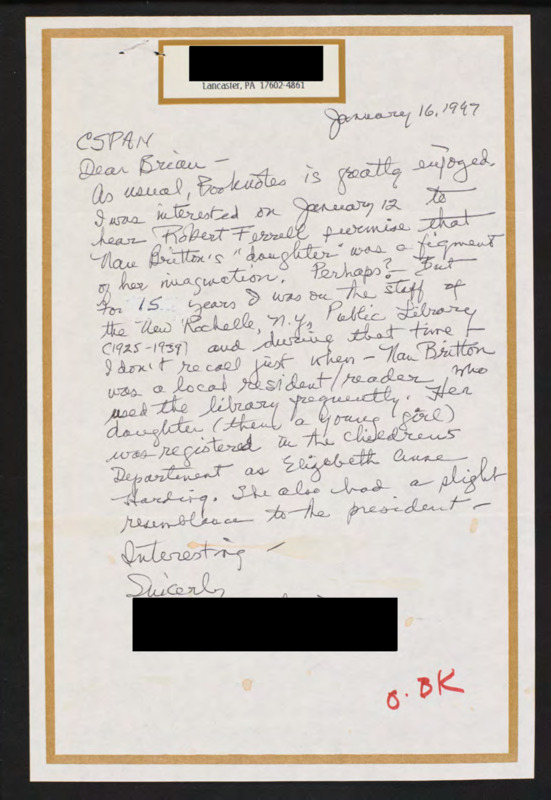 Lancaster, PA 17602-4861
January 16, 1997
CSPAN
Dear Brian —
As usual, Booknotes is greatly enjoyed.
I was interested on January 12 to
hear Robert Ferrell surmise that
Nan Britton's "daughter" was a figment
of her imagination. Perhaps? — But
for 15 years I was on the staff of
the New Rochelle, N.Y., Public Library
(1925-1939) and during that time —
I don't recall just when — Nan Britton
was a local resident/reader who
used the library frequently. Her
daughter (then a young girl)
was registered in the children's
Department as Elizabeth Anne
Harding. She also had a slight
resemblance to the president —
Interesting —
Sincerely
O. BK